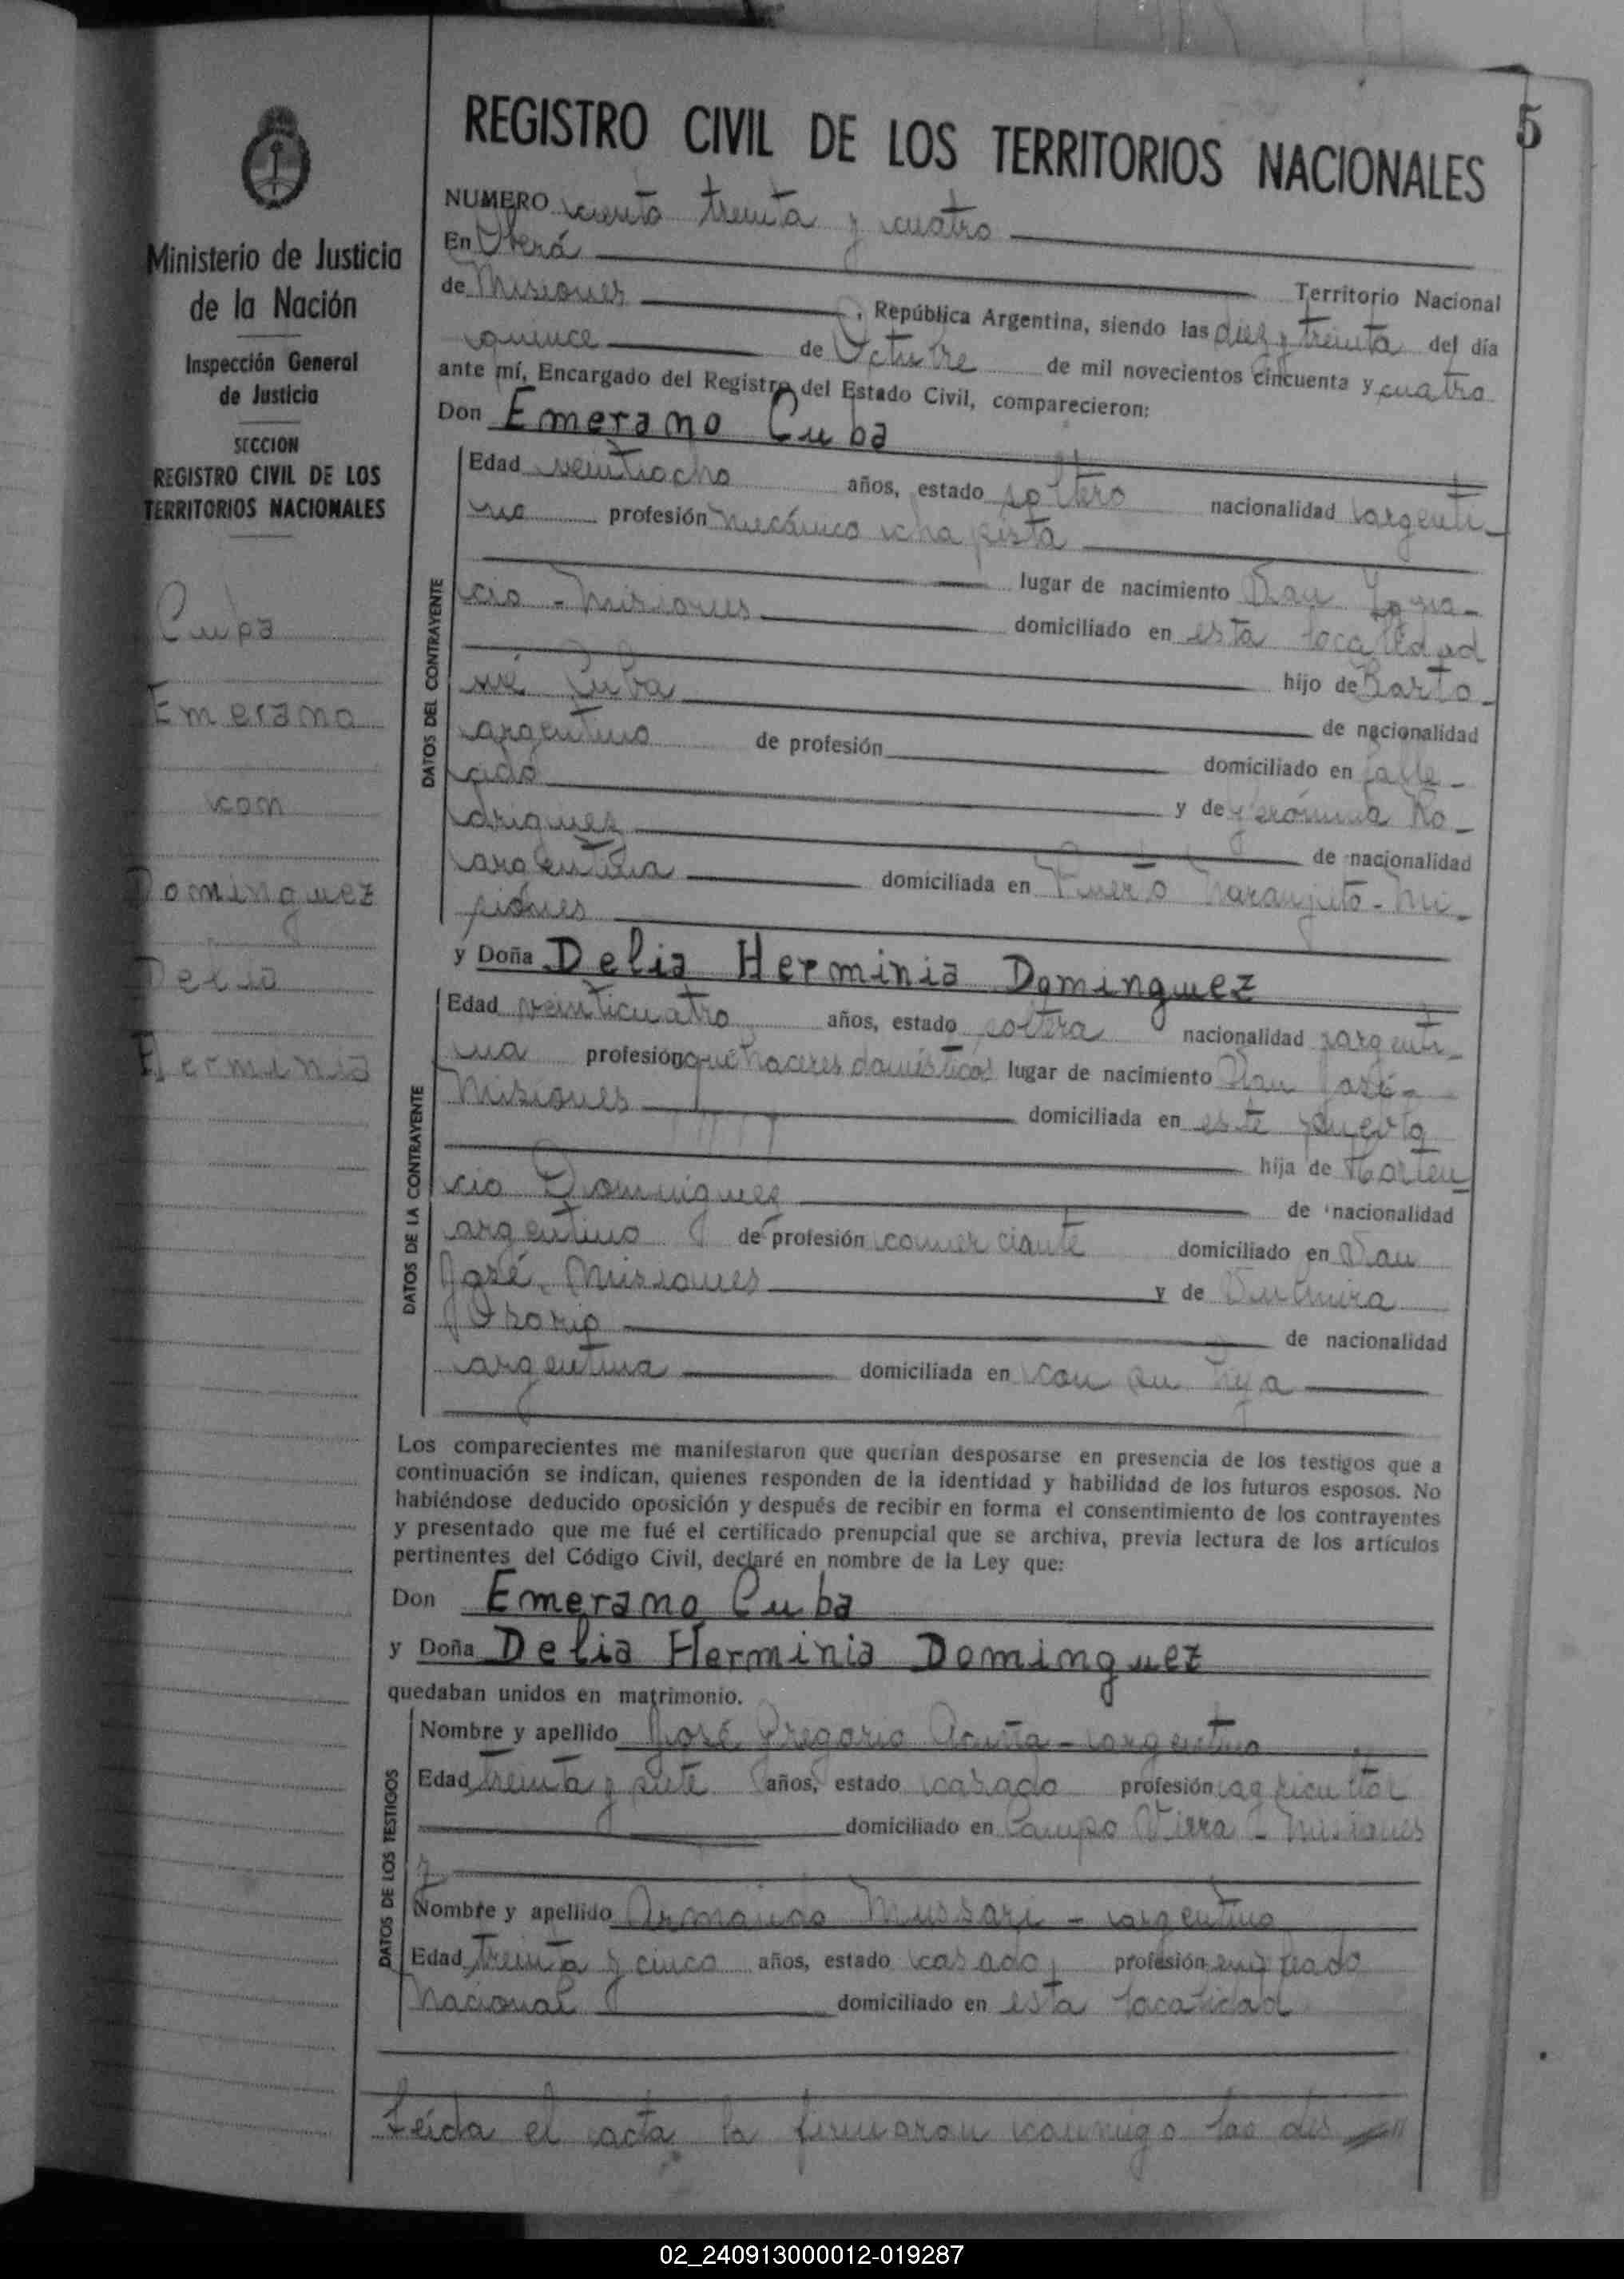 5
REGISTRO CIVIL DE LOS TERRITORIOS NACIONALES
Ministerio de Justicia
de la Nación
Inspección General
de Justicia
SECCION
REGISTRO CIVIL DE LOS
TERRITORIOS NACIONALES
Cuba
Emerano
con
Dominguez
Delia
Herminia
NUMERO ciento treinta y cuatro
En Oberá
Territorio Nacional
de Misiones, República Argentina, siendo las diez y treinta del día
quince de Octubre de mil novecientos cincuenta y cuatro
ante mí, Encargado del Registro del Estado Civil, comparecieron:
Don Emerano Cuba
DATOS DEL CONTRAYENTE
Edad veintiocho años, estado soltero nacionalidad argenti-
no profesión mecánico chapista
lugar de nacimiento San Igna-
cio - Misiones domiciliado en esta localidad
hijo de Barto-
mé Cuba de nacionalidad
argentino de profesión domiciliado en falle-
cido y de Jerónima Ro-
driguez de nacionalidad
argentina domiciliada en Puerto Naranjito - Mi-
siones
y Doña Delia Herminia Dominguez
DATOS DE LA CONTRAYENTE
Edad veinticuatro años, estado soltera nacionalidad argenti-
na profesión quehaceres domésticos lugar de nacimiento San José -
Misiones domiciliada en este pueblo
hija de Horten
cio Dominguez de nacionalidad
argentino de profesión comerciante domiciliado en San
José, Misiones y de
Osorio de nacionalidad
argentina domiciliada en con su hija
Los comparecientes me manifestaron que querían desposarse en presencia de los testigos que a
continuación se indican, quienes responden de la identidad y habilidad de los futuros esposos. No
habiéndose deducido oposición y después de recibir en forma el consentimiento de los contrayentes
y presentado que me fué el certificado prenupcial que se archiva, previa lectura de los artículos
pertinentes del Código Civil, declaré en nombre de la Ley que:
Don Emerano Cuba
y Doña Delia Herminia Dominguez
quedaban unidos en matrimonio.
DATOS DE LOS TESTIGOS
Nombre y apellido José Gregorio Acuña - argentino
Edad treinta y siete años, estado casado profesión agricultor
domiciliado en Campo Viera - Misiones
y
Nombre y apellido Armando Mussari - argentino
Edad treinta y cinco años, estado casado, profesión empleado
Nacional domiciliado en esta localidad
Leída el acta la firmaron conmigo los des
02_240913000012-019287